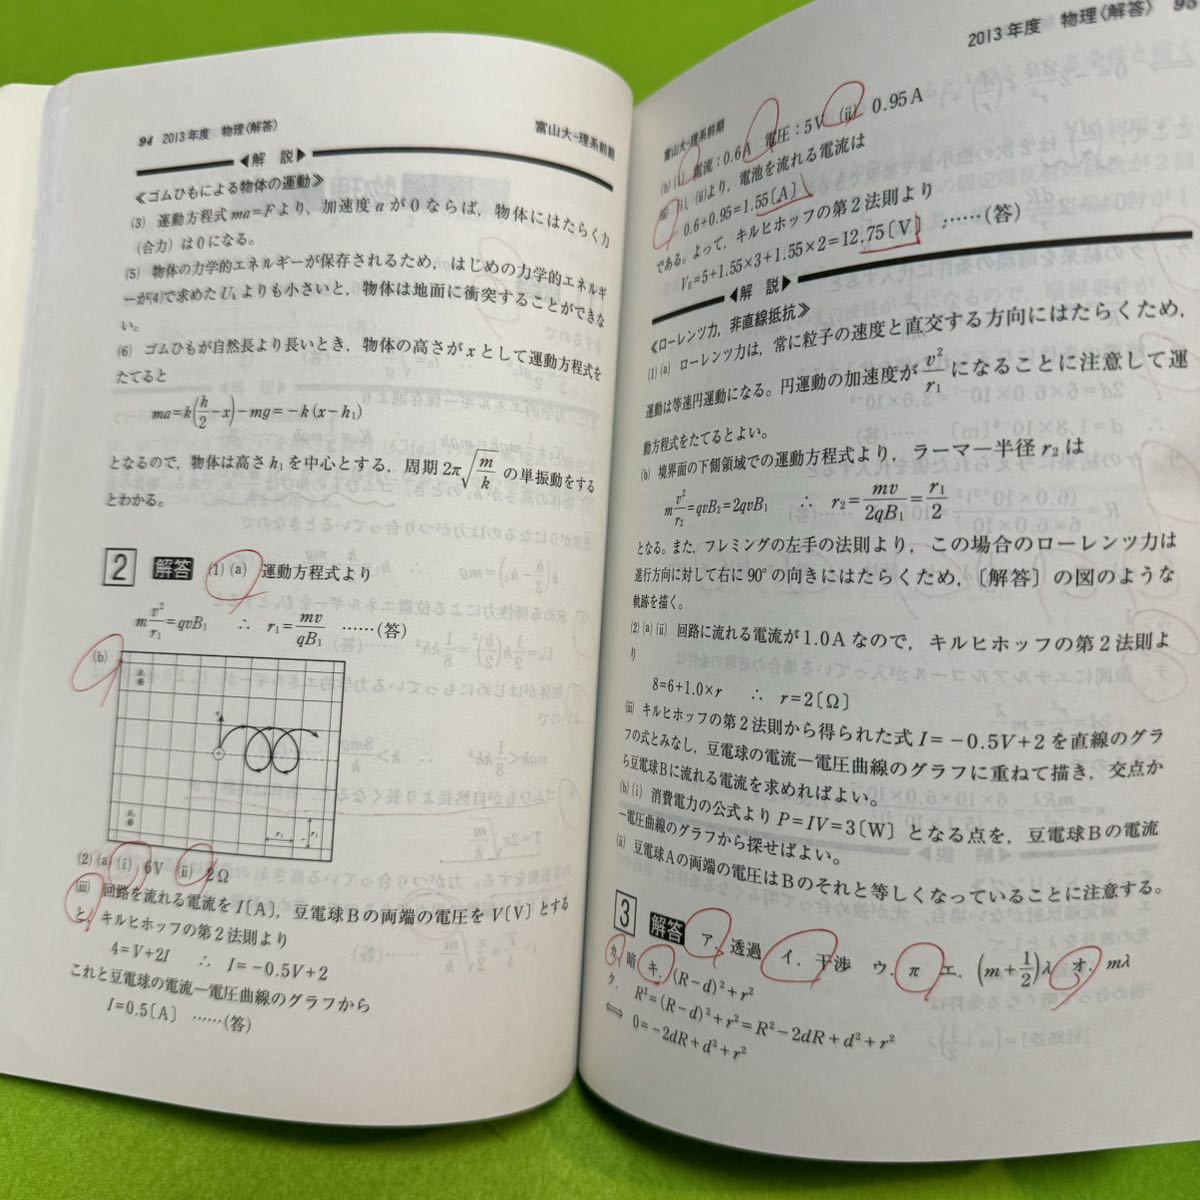 94 2013年度 物理〈解答〉 富山大-理系前期
◀解 説▶
≪ゴムひもによる物体の運動≫
(3) 運動方程式 ma=F より，加速度 a が 0 ならば，物体にはたらく力
(合力) は 0 になる。
(5) 物体の力学的エネルギーが保存されるため，はじめの力学的エネルギ
ーが(4)で求めた U₁ よりも小さいと，物体は地面に衝突することができな
い。
(6) ゴムひもが自然長より長いとき，物体の高さが x として運動方程式を
たてると
ma=k(h/2−x)−mg=−k(x−h₁)
となるので，物体は高さ h₁ を中心とする，周期 2π√(m/k) の単振動をする
とわかる。
2 解答 (1) (a) 運動方程式より
m v²/r₁=qvB₁ ∴ r₁=mv/qB₁ ……(答)
(b)
B₁
r₁ r₁
(2) (a) (i) 6V (ii) 2Ω
(iii) 回路を流れる電流を I〔A〕，豆電球Bの両端の電圧を V〔V〕とする
と，キルヒホッフの第2法則より
4=V+2I ∴ I=−0.5V+2
これと豆電球の電流―電圧曲線のグラフから
I=0.5〔A〕 ……(答)
富山大-理系前期 2013年度 物理〈解答〉 95
(b) (i) 電流：0.6A 電圧：5V (ii) 0.95A
(i)，(ii)より，電池を流れる電流は
0.6+0.95=1.55〔A〕
である。よって，キルヒホッフの第2法則より
V_E=5+1.55×3+1.55×2=12.75〔V〕 ……(答)
◀解 説▶
≪ローレンツ力，非直線抵抗≫
(1) (a) ローレンツ力は，常に粒子の速度と直交する方向にはたらくため，
運動は等速円運動になる。円運動の加速度が v²/r₁ になることに注意して運
動方程式をたてるとよい。
(b) 境界面の下側領域での運動方程式より，ラーマー半径 r₂ は
m v²/r₂=qvB₂=2qvB₁ ∴ r₂=mv/2qB₁=r₁/2
となる。また，フレミングの左手の法則より，この場合のローレンツ力は
進行方向に対して右に 90° の向きにはたらくため，〔解答〕の図のような
軌跡を描く。
(2) (a) (ii) 回路に流れる電流が 1.0A なので，キルヒホッフの第2法則よ
り
8=6+1.0×r ∴ r=2〔Ω〕
(iii) キルヒホッフの第2法則から得られた式 I=−0.5V+2 を直線のグラ
フの式とみなし，豆電球の電流―電圧曲線のグラフに重ねて描き，交点か
ら豆電球Bに流れる電流を求めればよい。
(b) (i) 消費電力の公式より P=IV=3〔W〕となる点を，豆電球Bの電流
―電圧曲線のグラフから探せばよい。
(ii) 豆電球Aの両端の電圧はBのそれと等しくなっていることに注意する。
3 解答 ア．透過 イ．干渉 ウ．π エ．(m+1/2)λ オ．mλ
カ．暗 キ．(R−d)²+r²
ク． R²=(R−d)²+r²=R²−2dR+d²+r²
⟺ 0=−2dR+d²+r²